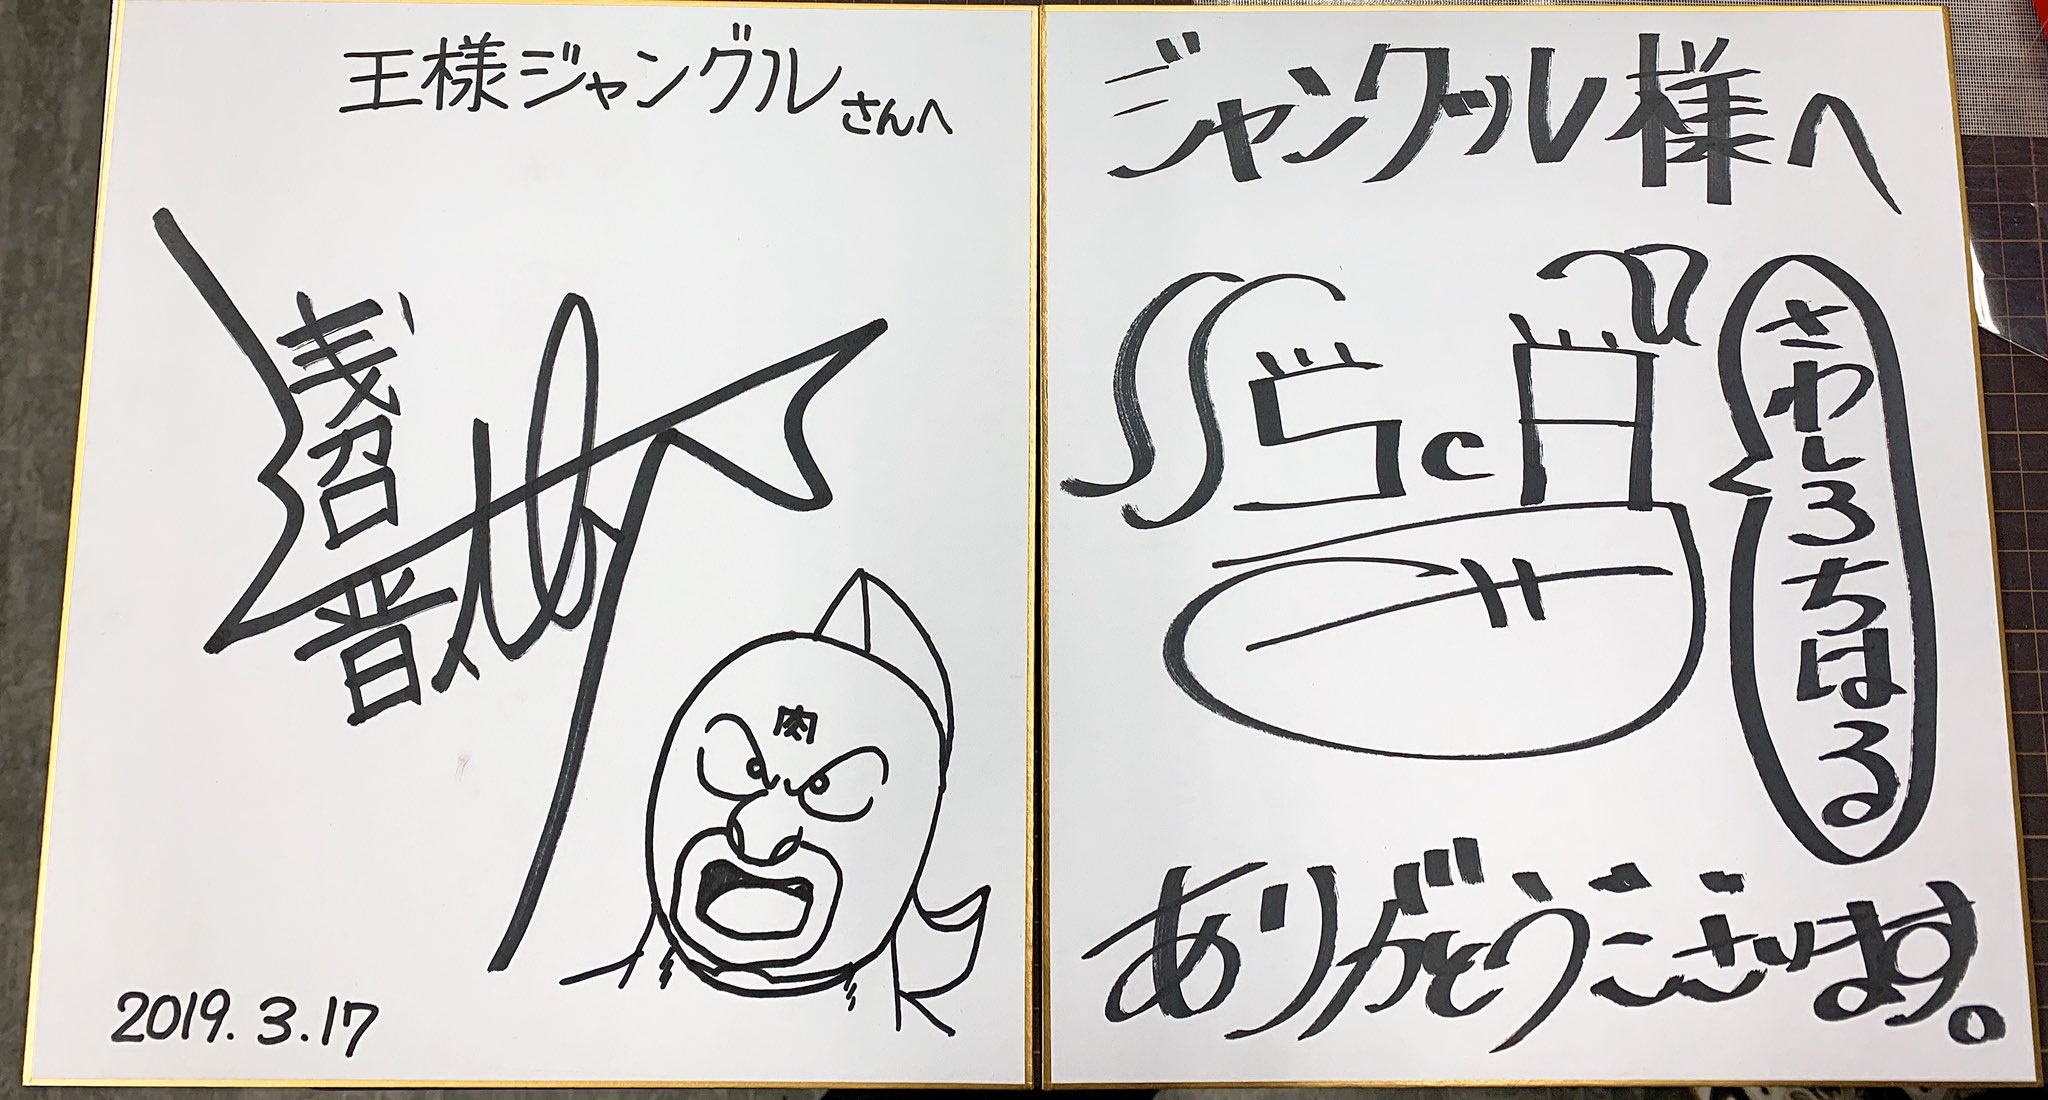 王様ジャングルさんへ
浅沼晋也
肉
2019.3.17
ジャングル様へ
さわしろちはる
ありがとうございます。